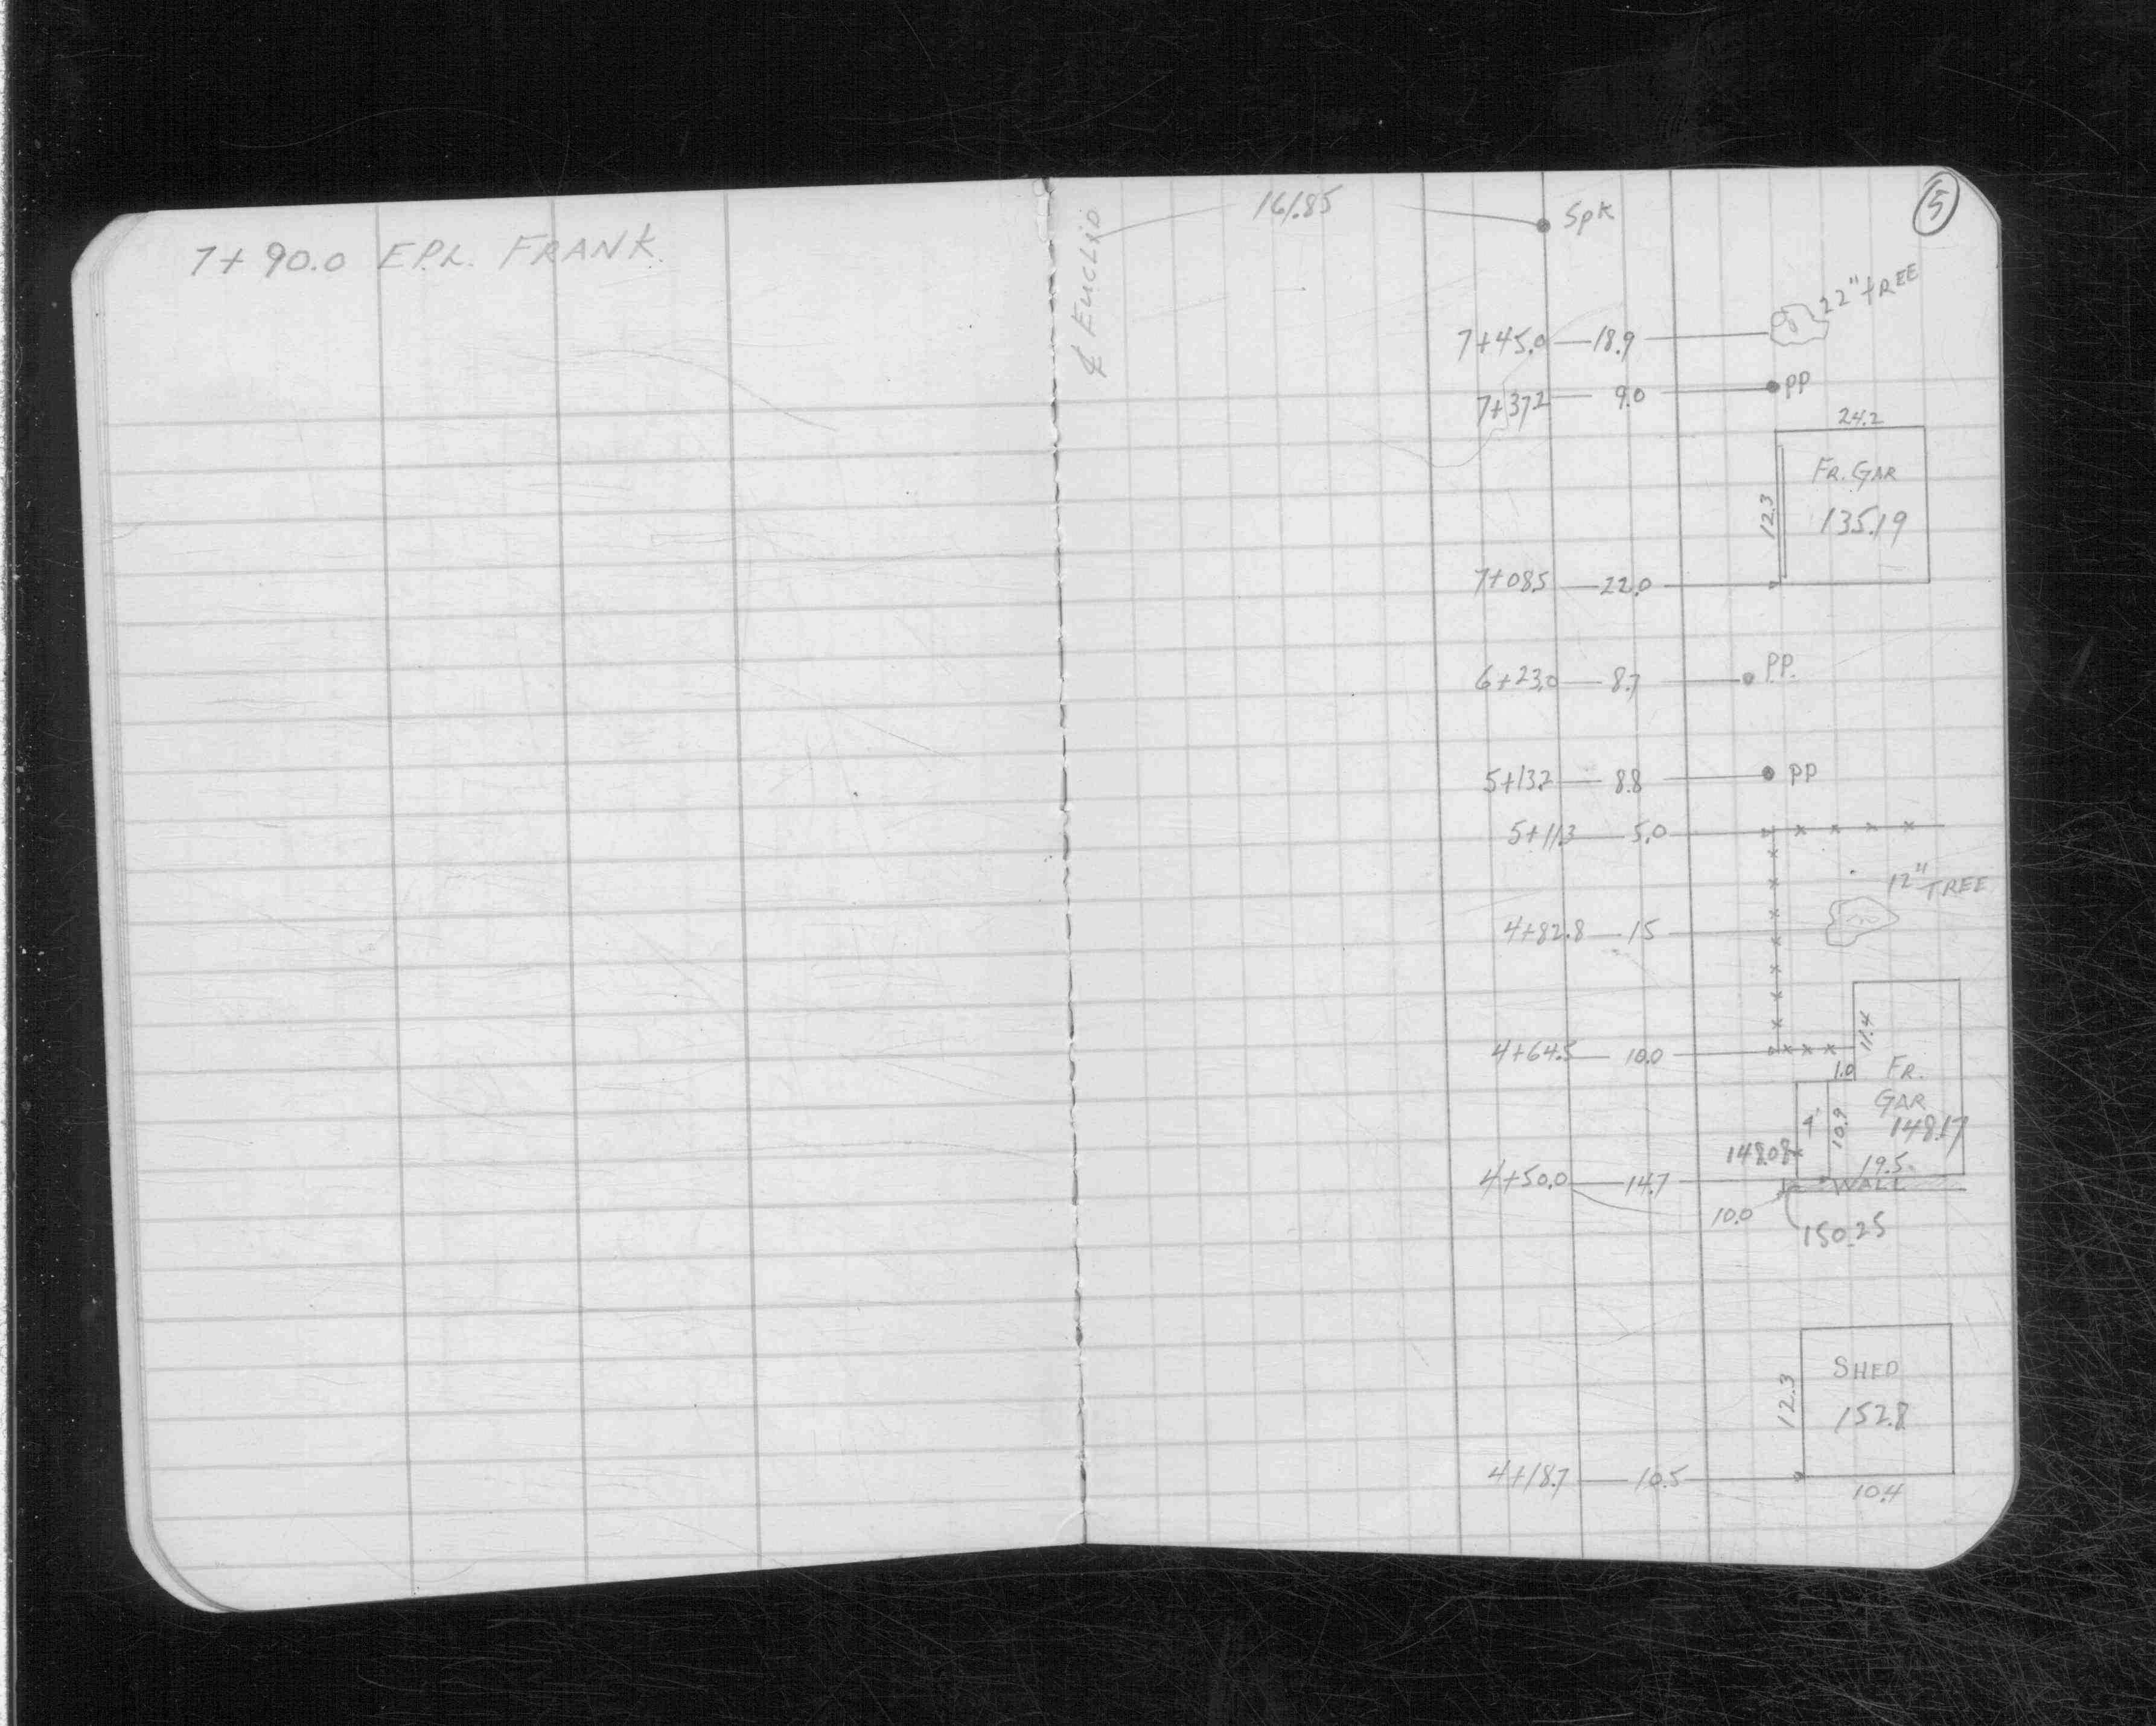 7+90.0 E.P.L. FRANK.
⅊ EUCLID
161.85
Spk
5
22" TREE
7+45.0 — 18.9
7+37.2 — 9.0 — PP
24.2
FR. GAR
12.3
135.19
7+08.5 — 22.0
6+23.0 — 8.7 — P.P.
5+13.2 — 8.8 — PP
5+11.3 — 5.0
12" TREE
4+82.8 — 15
11.4
4+64.5 — 10.0
1.0 FR.
GAR
4' 10.9 148.17
148.08
19.5
4+50.0 — 14.7 WALL
10.0
150.25
SHED
12.3
152.8
4+18.7 — 10.5
10.4